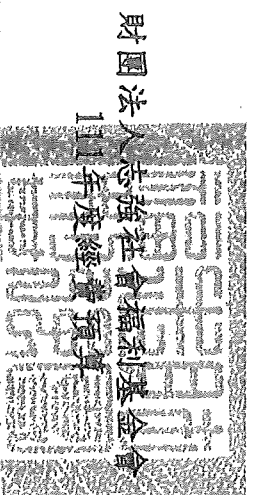 財團法人志強社會福利基金會
111年度經費預算